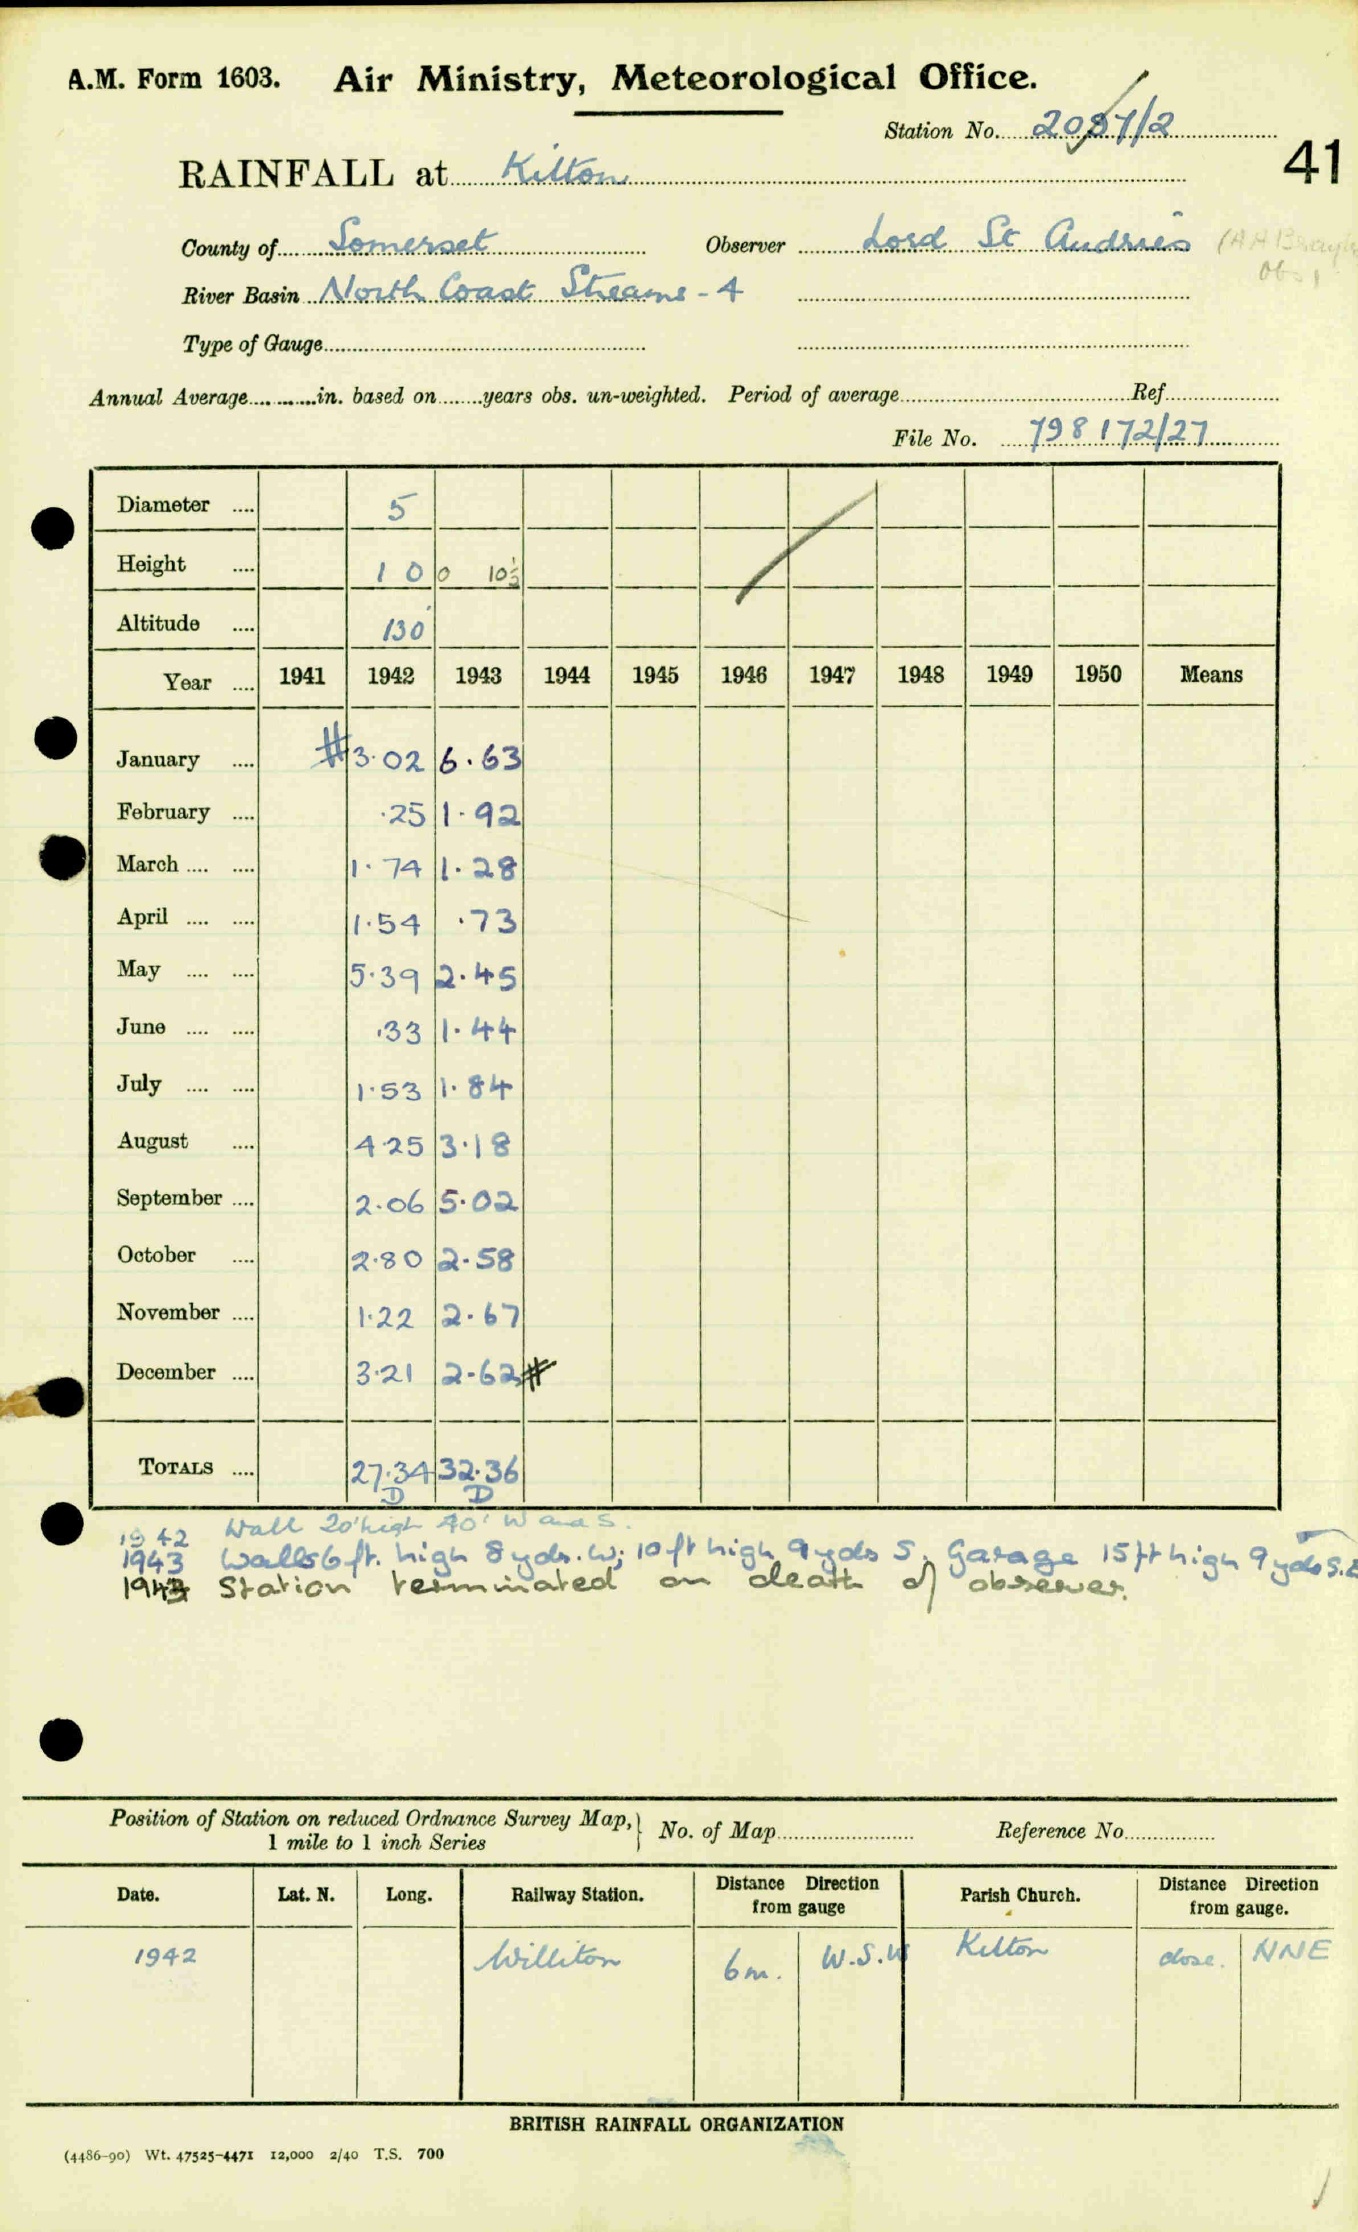 A.M. Form 1603. Air Ministry, Meteorological Office.
Station No. 2087/2
41
RAINFALL at Kilton
County of Somerset Observer Lord St Audries (A A Brayley
Obs)
River Basin North Coast Streams - 4
Type of Gauge
Annual Average ............in. based on ........years obs. un-weighted. Period of average Ref.
File No. 798172/27
Diameter .... 5
Height .... 1 0 0 10½
Altitude .... 130'
Year .... 1941 1942 1943 1944 1945 1946 1947 1948 1949 1950 Means
January .... # 3.02 6.63
February .... .25 1.92
March .... .... 1.74 1.28
April .... .... 1.54 .73
May .... .... 5.39 2.45
June .... .... .33 1.44
July .... .... 1.53 1.84
August .... 4.25 3.18
September .... 2.06 5.02
October .... 2.80 2.58
November .... 1.22 2.67
December .... 3.21 2.62 #
TOTALS .... 27.34 32.36
D D
1942 Wall 20' high 40' W and S.
1943 Walls 6 ft. high 8 yds. W; 10 ft high 9 yds S. Garage 15 ft high 9 yds S.E
1943 Station terminated on death of observer.
Position of Station on reduced Ordnance Survey Map, } No. of Map Reference No.
1 mile to 1 inch Series
Date. Lat. N. Long. Railway Station. Distance Direction from gauge Parish Church. Distance Direction from gauge.
1942 Williton 6m. W.S.W Kilton close. NNE
BRITISH RAINFALL ORGANIZATION
(4486-90) Wt. 47525-4471 12,000 2/40 T.S. 700